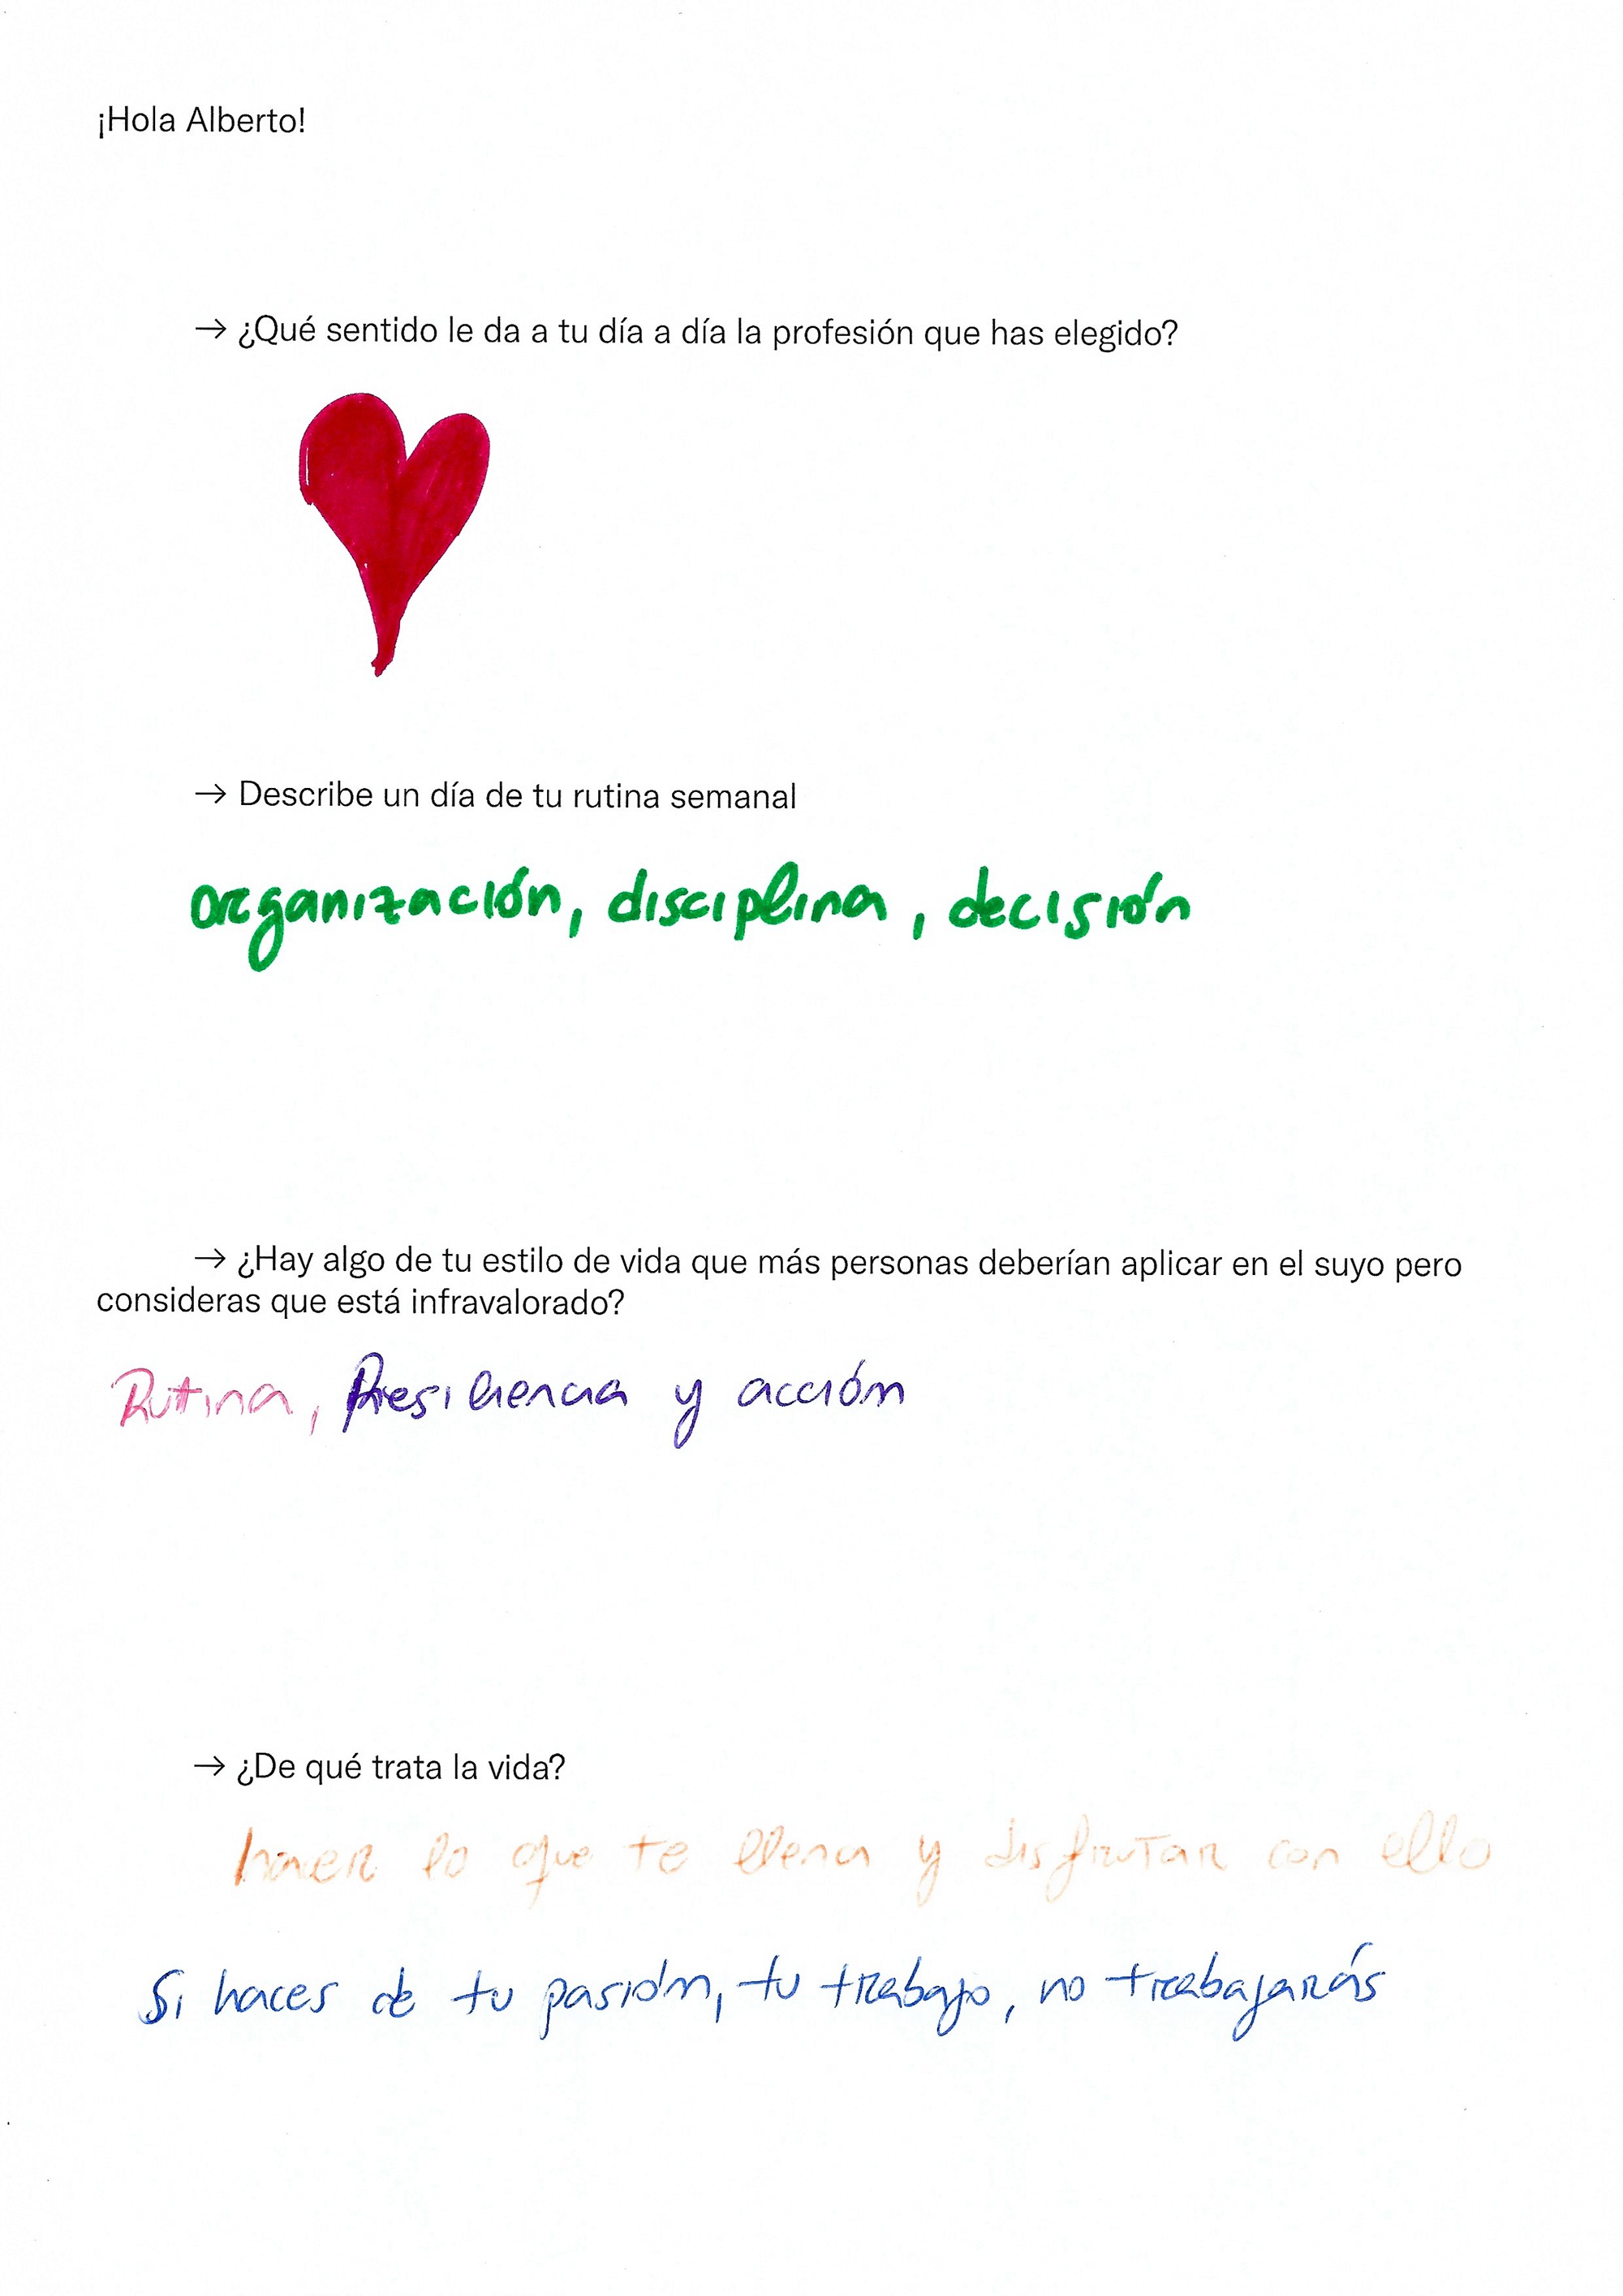 ¡Hola Alberto!
→ ¿Qué sentido le da a tu día a día la profesión que has elegido?
→ Describe un día de tu rutina semanal
organización, disciplina, decisión
→ ¿Hay algo de tu estilo de vida que más personas deberían aplicar en el suyo pero
consideras que está infravalorado?
Rutina, Resiliencia y acción
→ ¿De qué trata la vida?
hacer lo que te llena y disfrutar con ello
Si haces de tu pasión, tu trabajo, no trabajarás